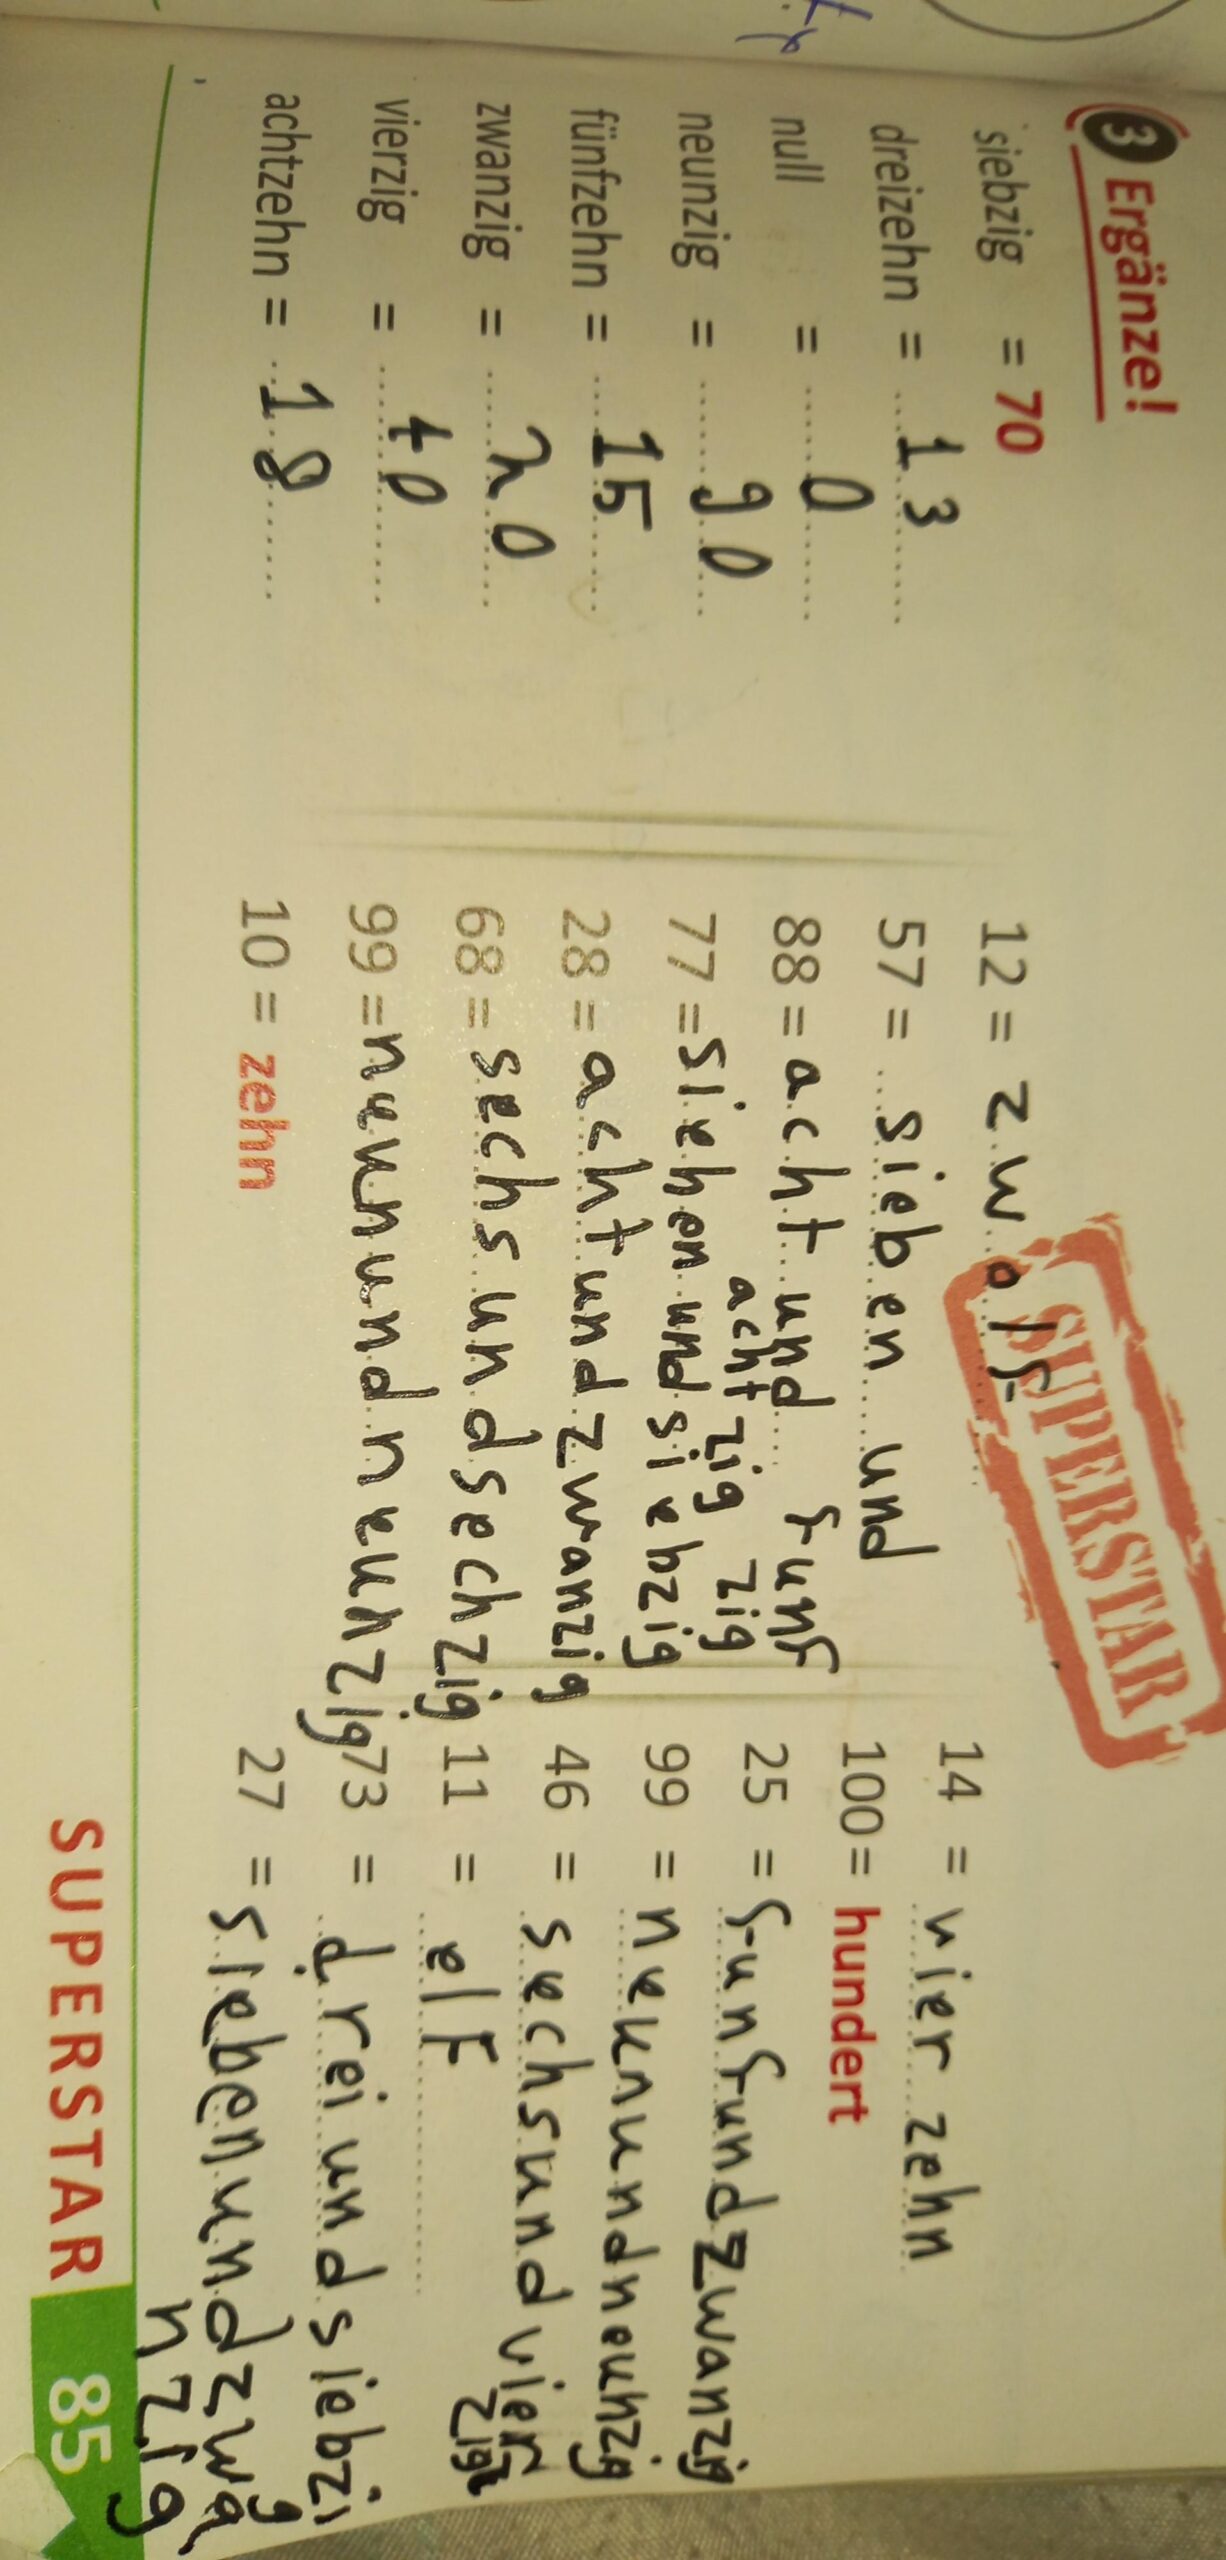 3 Ergänze!
siebzig = 70
dreizehn = 13
null = 0
neunzig = 90
fünfzehn = 15
zwanzig = 20
vierzig = 40
achtzehn = 18
12 = zwolf
57 = sieben und funf zig
88 = acht und acht zig
77 = sieben und siebzig
28 = achtundzwanzig
68 = sechsundsechzig
99 = neunundneunzig
10 = zehn
SUPERSTAR
14 = vier zehn
100 = hundert
25 = funfundzwanzig
99 = neunundneunzig
46 = sechsundvier zig
11 = elf
73 = dreiundsiebzig
27 = siebenundzwa
nzig
SUPERSTAR 85